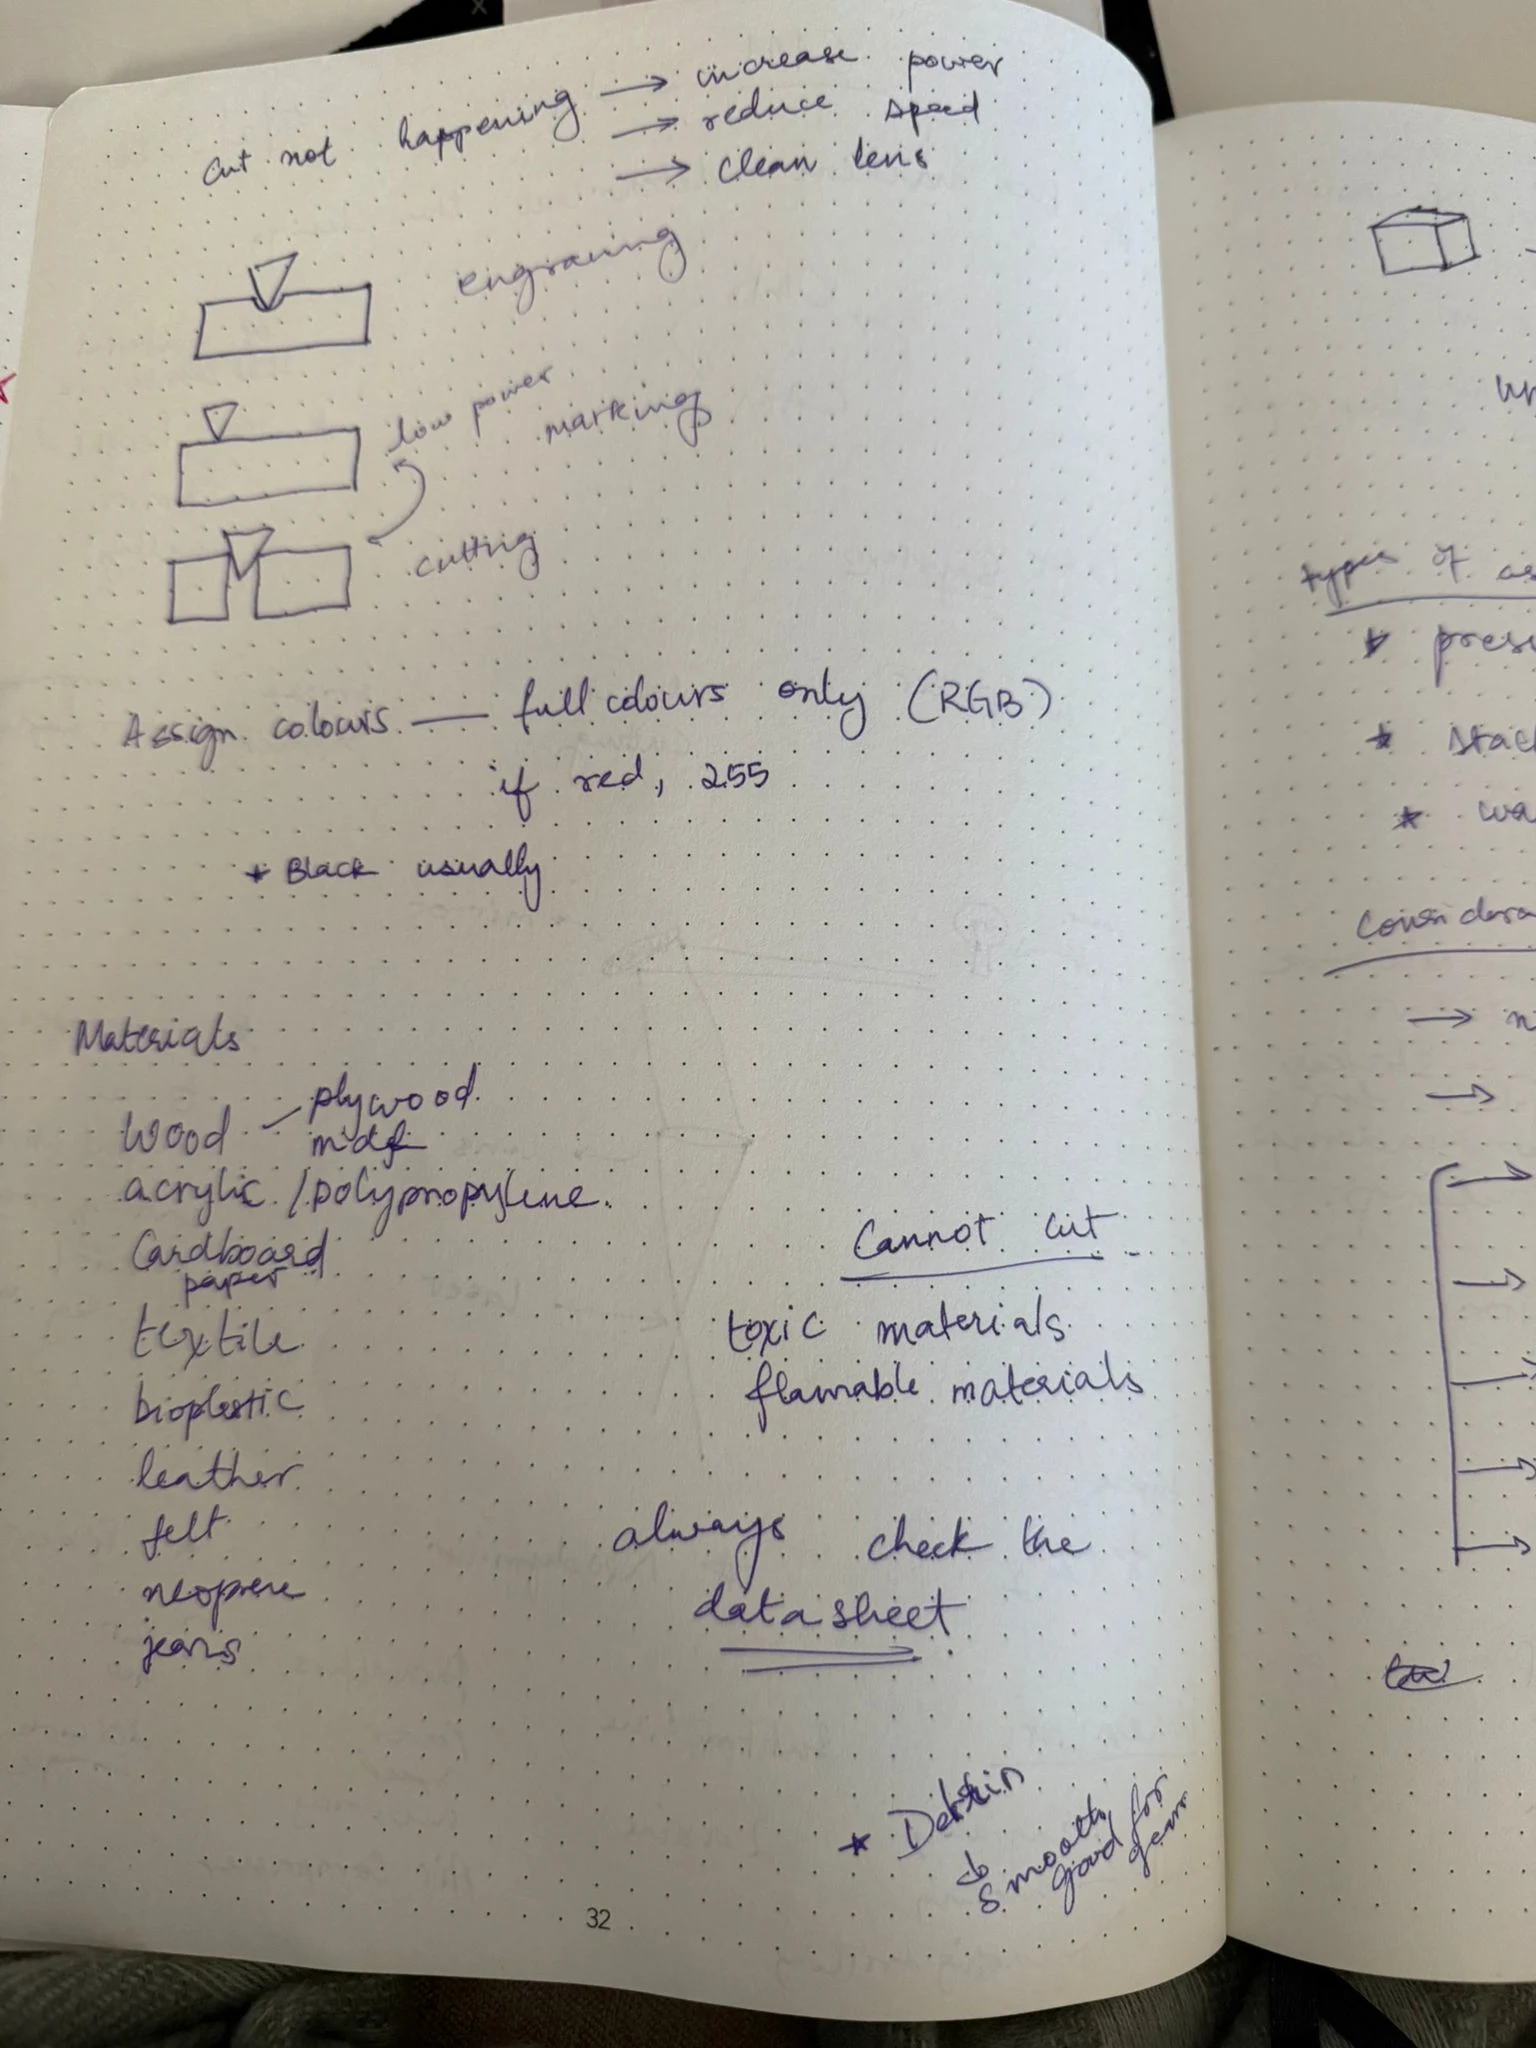 cut not happening → increase power
→ reduce speed
→ clean lens
engraving
low power
marking
cutting
Assign colours — full colours only (RGB)
if red, 255
* Black usually
Materials
wood – plywood
mdf
acrylic / polypropylene
Cardboard
paper
textile
bioplastic
leather
felt
neoprene
jeans
Cannot cut
toxic materials
flamable materials
always check the
datasheet
*
smooth,
good for
gears
32
types of
*
* stac
*
→
→